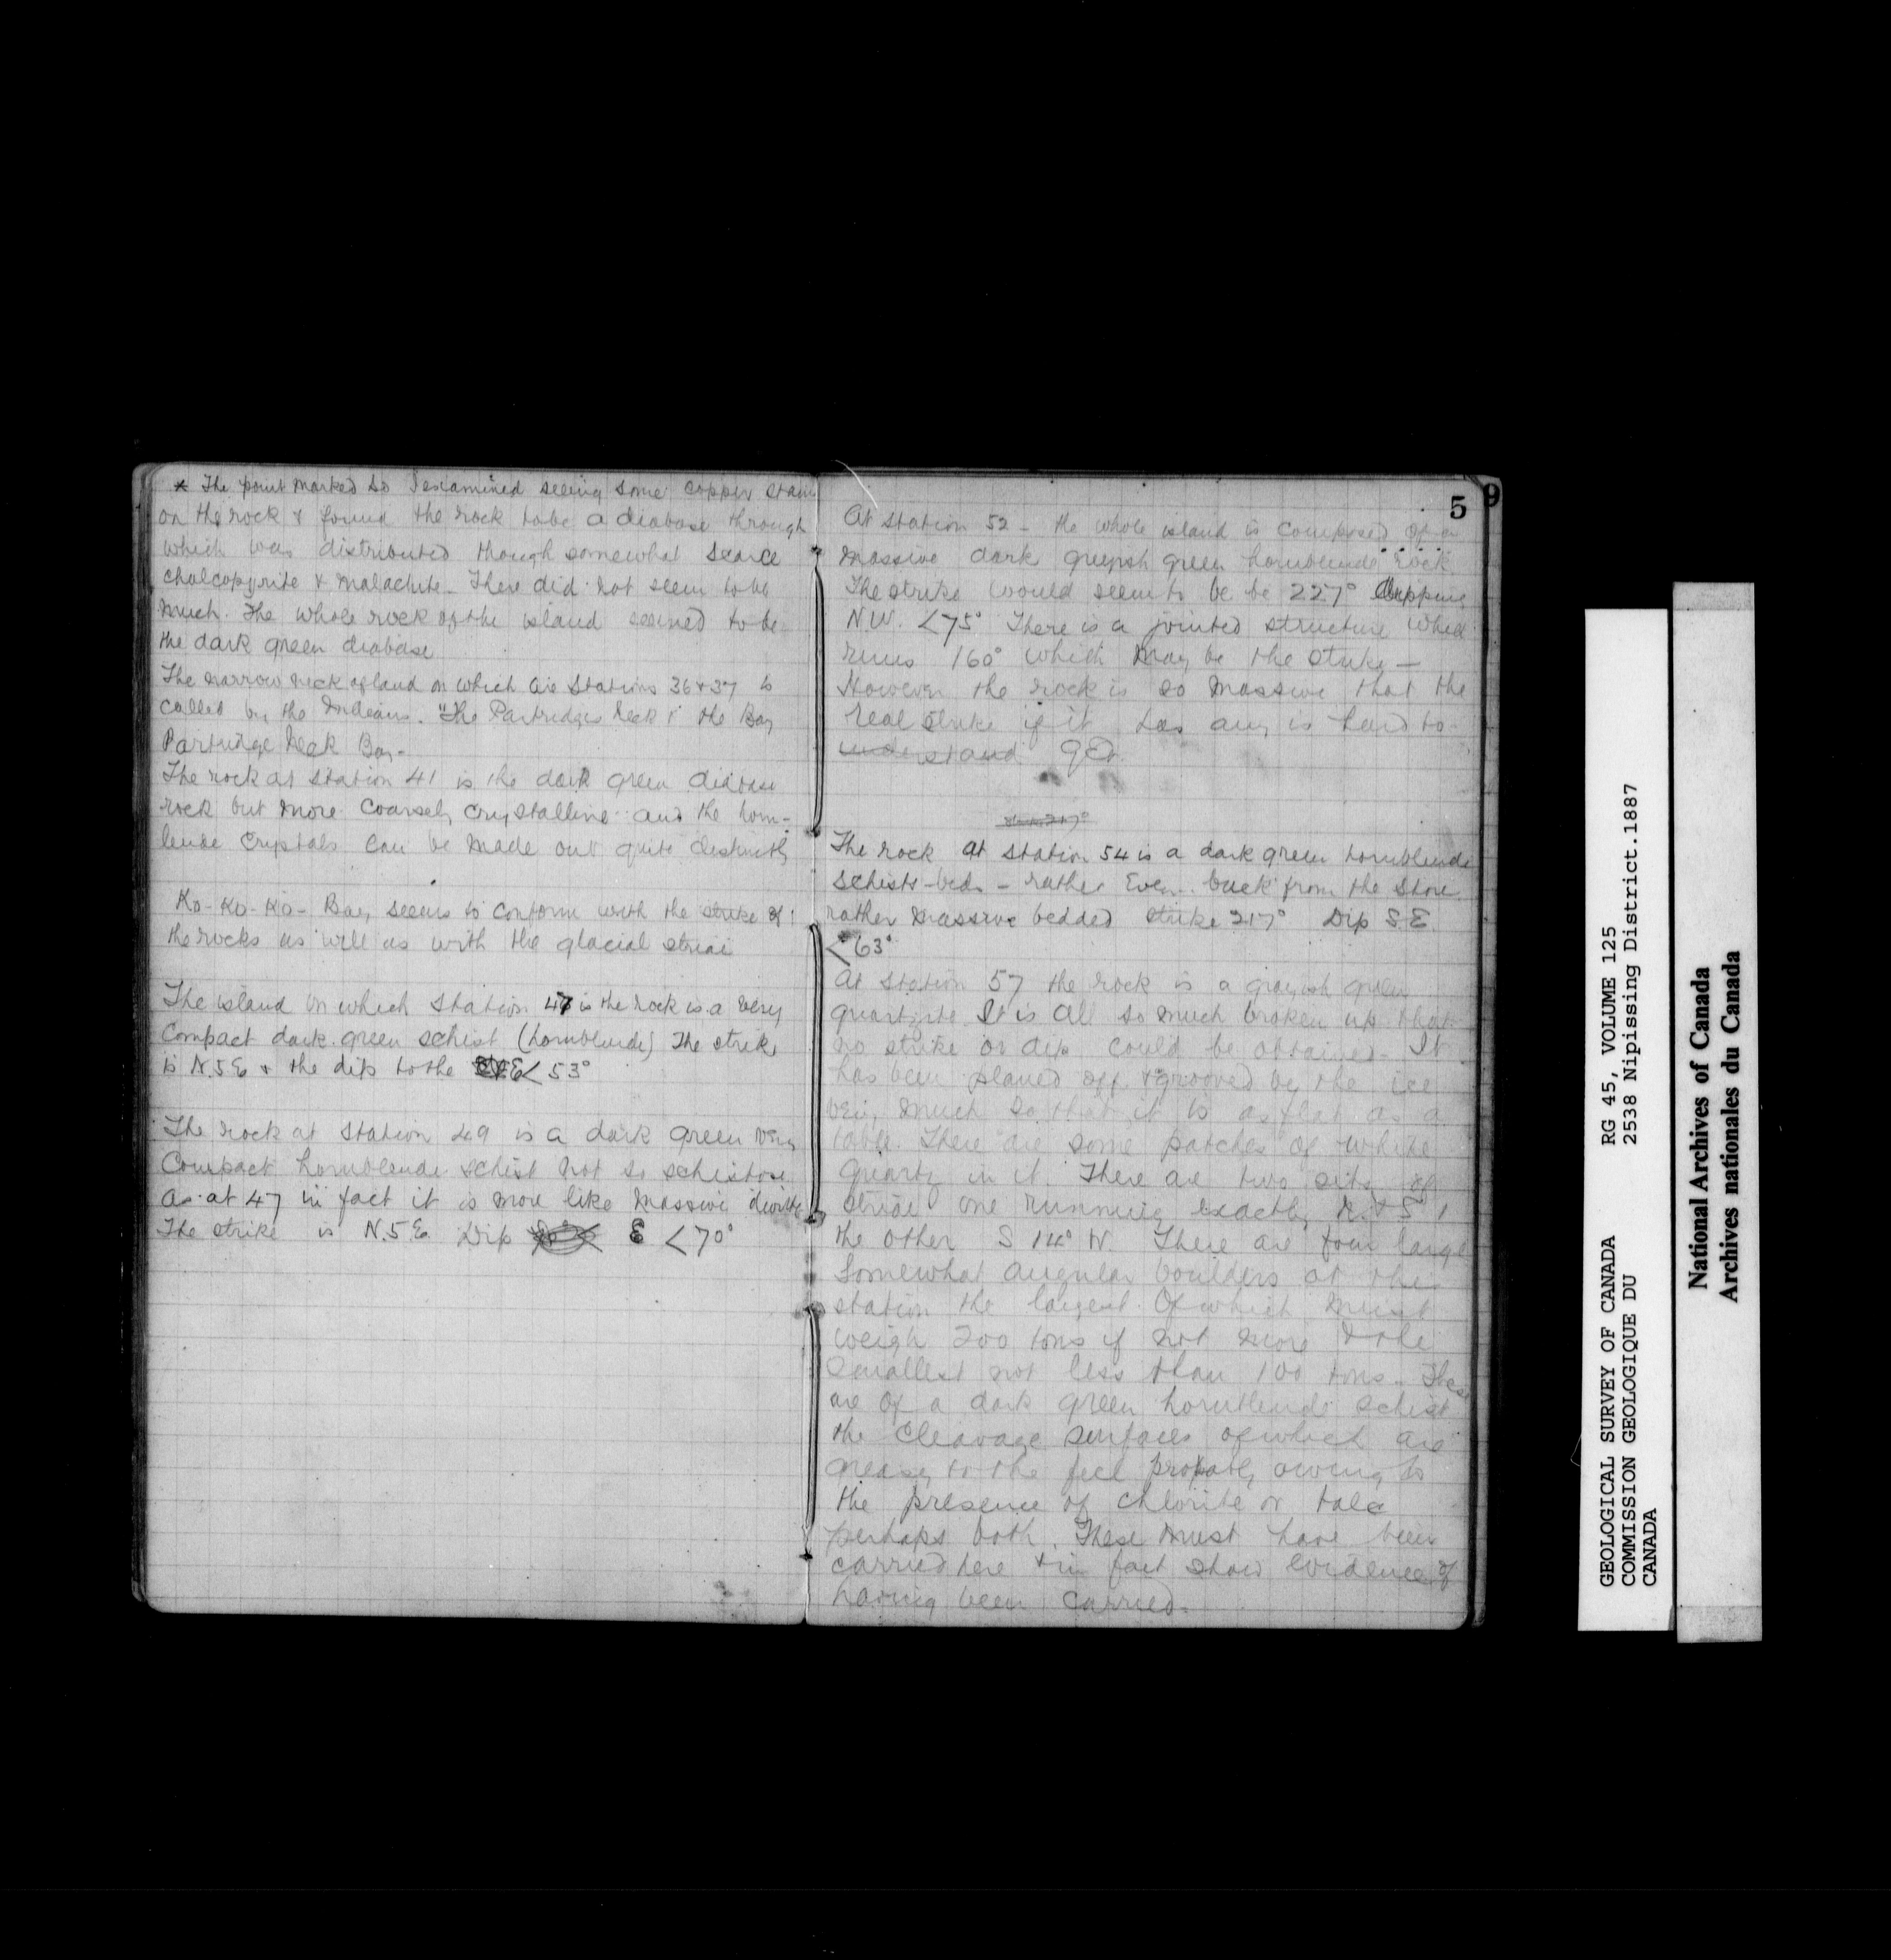 * The point marked so I examined seeing some copper stain
on the rock & found the rock to be a diabase through
which was distributed though somewhat scarce
chalcopyrite & malachite - There did not seem to be
much. The whole rock of the island seemed to be
the dark green diabase
The narrow neck of land on which are Stations 36 & 37 is
called by the Indians. "The Partridges Neck & the Bay
Partridge Neck Bay -
The rock at station 41 is the dark green diabase
rock but more coarsely crystalline and the horn-
lende crystals can be made out quite distinctly
Ko-Ko-Ko- Bay seems to conform with the strike of
the rocks as well as with the glacial striae
The island on which Station 47 is the rock is a very
compact dark green schist (hornblende) The strike
is N.5E & the dip to the E < 53°
The rock at Station 49 is a dark green very
compact hornblende schist not so schistose
as at 47 in fact it is more like massive diorite
The strike is N.5E. Dip E < 70°
5
9
At station 52 - the whole island is composed of a
massive dark greyish green hornblende rock
The strike would seem to be be 227° dipping
N.W. < 75° There is a jointed structure which
runs 160° which may be the strike -
However the rock is so massive that the
real strike if it has any is hard to
understand get.
The rock at station 54 is a dark green hornblende
schists-beds - rather even back from the shore
rather massive bedded strike 217° Dip S.E.
< 63°
At station 57 the rock is a grayish green
quartzite It is all so much broken up that
no strike or dip could be obtained - It
has been planed off & grooved by the ice
very much so that it is as flat as a
table. There are some patches of white
quartz in it. There are two sets of
striae one running exactly N. & S
the other S 14° W. There are four large
somewhat angular boulders at the
station the largest of which must
weigh 200 tons if not more & the
smallest not less than 100 tons - These
are of a dark green hornblende schist
the cleavage surfaces of which are
greasy to the feel probably owing to
the presence of chlorite or talc
perhaps both. These must have been
carried here & in fact show evidence of
having been carried.
GEOLOGICAL SURVEY OF CANADA RG 45, VOLUME 125
COMMISSION GEOLOGIQUE DU 2538 Nipissing District.1887
CANADA
National Archives of Canada
Archives nationales du Canada